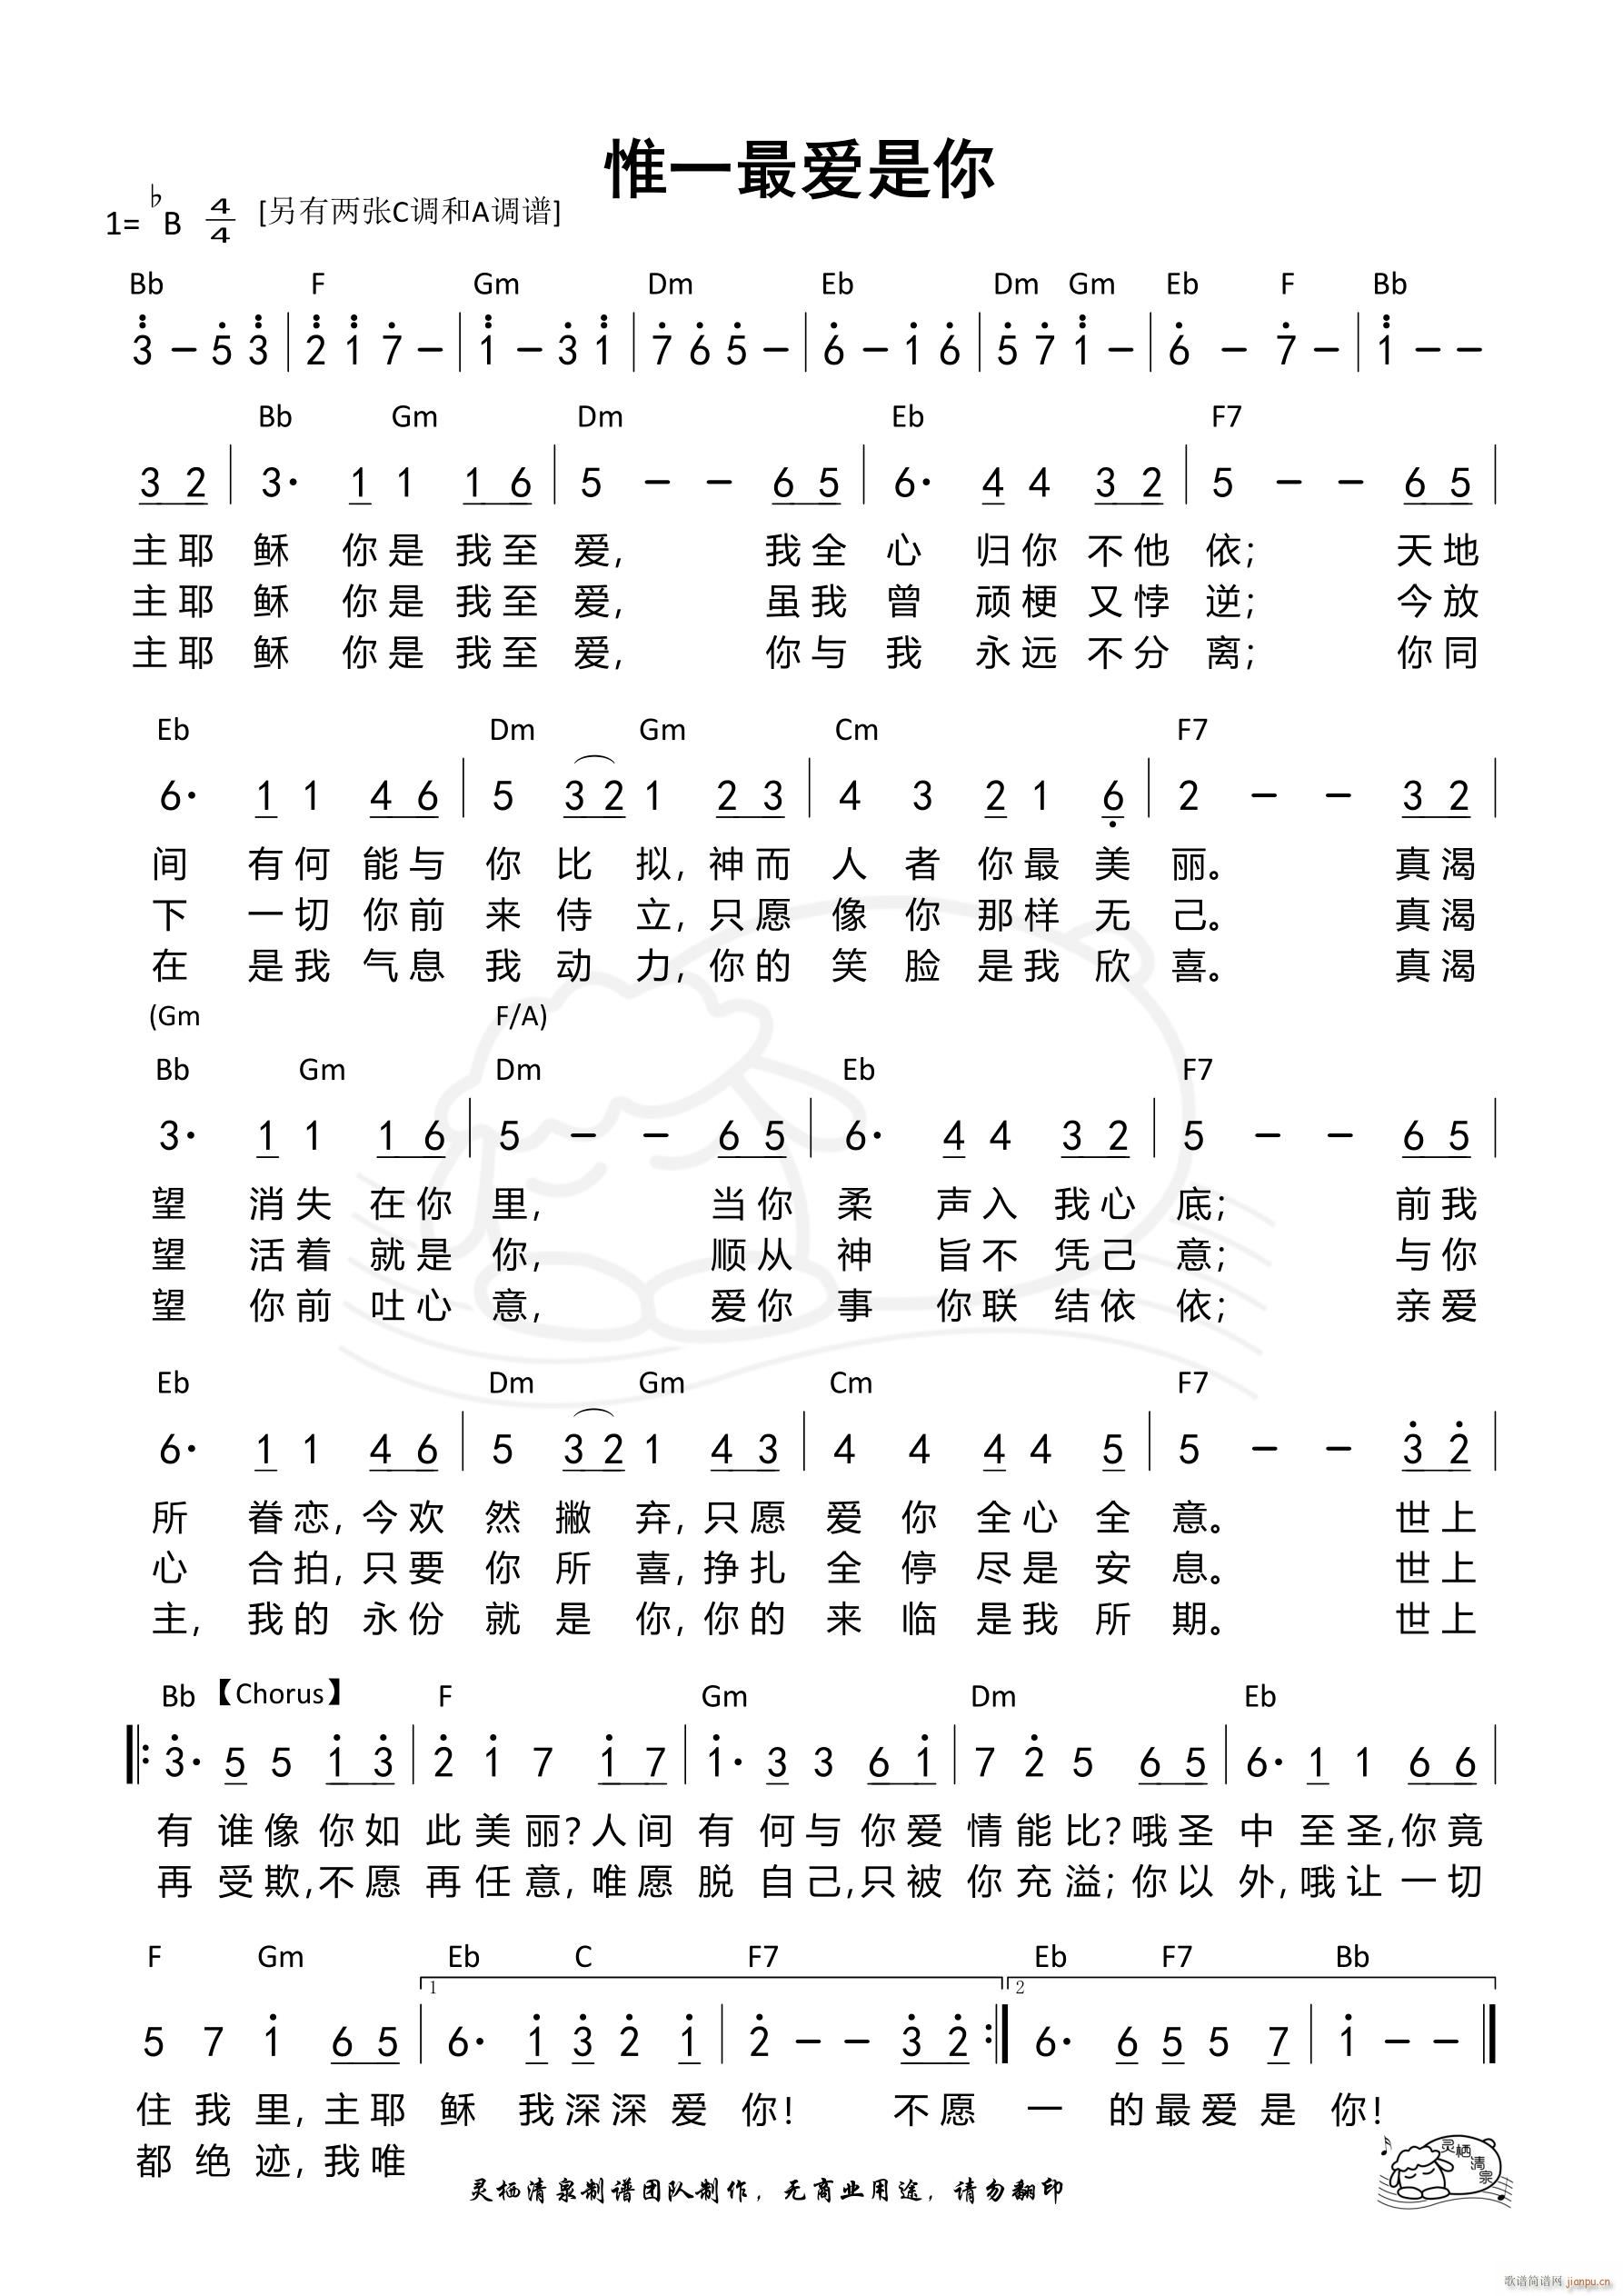 惟一最爱是你
1= ♭B 4/4 [另有两张C调和A调谱]
Bb F Gm Dm Eb Dm Gm Eb F Bb
3 – 5 3 | 2 1 7 – | 1 – 3 1 | 7 6 5 – | 6 – 1 6 | 5 7 1 – | 6 – 7 – | 1 – –
Bb Gm Dm Eb F7
3 2 | 3· 1 1 1 6 | 5 – – 6 5 | 6· 4 4 3 2 | 5 – – 6 5 |
主耶 稣 你是 我至 爱, 我全 心 归你 不他 依; 天地
主耶 稣 你是 我至 爱, 虽我 曾 顽梗 又悖 逆; 今放
主耶 稣 你是 我至 爱, 你与 我 永远 不分 离; 你同
Eb Dm Gm Cm F7
6· 1 1 4 6 | 5 3 2 1 2 3 | 4 3 2 1 6 | 2 – – 3 2 |
间 有何 能与 你 比 拟, 神而 人 者 你最 美 丽。 真渴
下 一切 你前 来 侍 立, 只愿 像 你 那样 无 己。 真渴
在 是我 气息 我 动 力, 你的 笑 脸 是我 欣 喜。 真渴
(Gm F/A)
Bb Gm Dm Eb F7
3· 1 1 1 6 | 5 – – 6 5 | 6· 4 4 3 2 | 5 – – 6 5 |
望 消失 在你 里, 当你 柔 声入 我心 底; 前我
望 活着 就是 你, 顺从 神 旨不 凭己 意; 与你
望 你前 吐心 意, 爱你 事 你联 结依 依; 亲爱
Eb Dm Gm Cm F7
6· 1 1 4 6 | 5 3 2 1 4 3 | 4 4 4 4 5 | 5 – – 3 2 |
所 眷恋, 今欢 然 撇 弃, 只愿 爱 你 全心 全 意。 世上
心 合拍, 只要 你 所 喜, 挣扎 全 停 尽是 安 息。 世上
主, 我的 永份 就 是 你, 你的 来 临 是我 所 期。 世上
Bb 【Chorus】 F Gm Dm Eb
3· 5 5 1 3 | 2 1 7 1 7 | 1· 3 3 6 1 | 7 2 5 6 5 | 6· 1 1 6 6 |
有 谁像 你如 此美丽? 人间 有 何与 你爱 情能比? 哦圣 中 至圣, 你竟
再 受欺, 不愿 再任意, 唯愿 脱 自己, 只被 你充溢; 你以 外, 哦让 一切
F Gm Eb C F7 Eb F7 Bb
1 2
5 7 1 6 5 | 6· 1 3 2 1 | 2 – – 3 2 :| 6· 6 5 5 7 | 1 – –
住 我 里, 主耶 稣 我深深 爱 你! 不愿 一 的最爱 是 你!
都 绝 迹, 我唯
灵栖清泉制谱团队制作, 无商业用途, 请勿翻印
灵栖清泉
歌谱简谱网 jianpu.cn